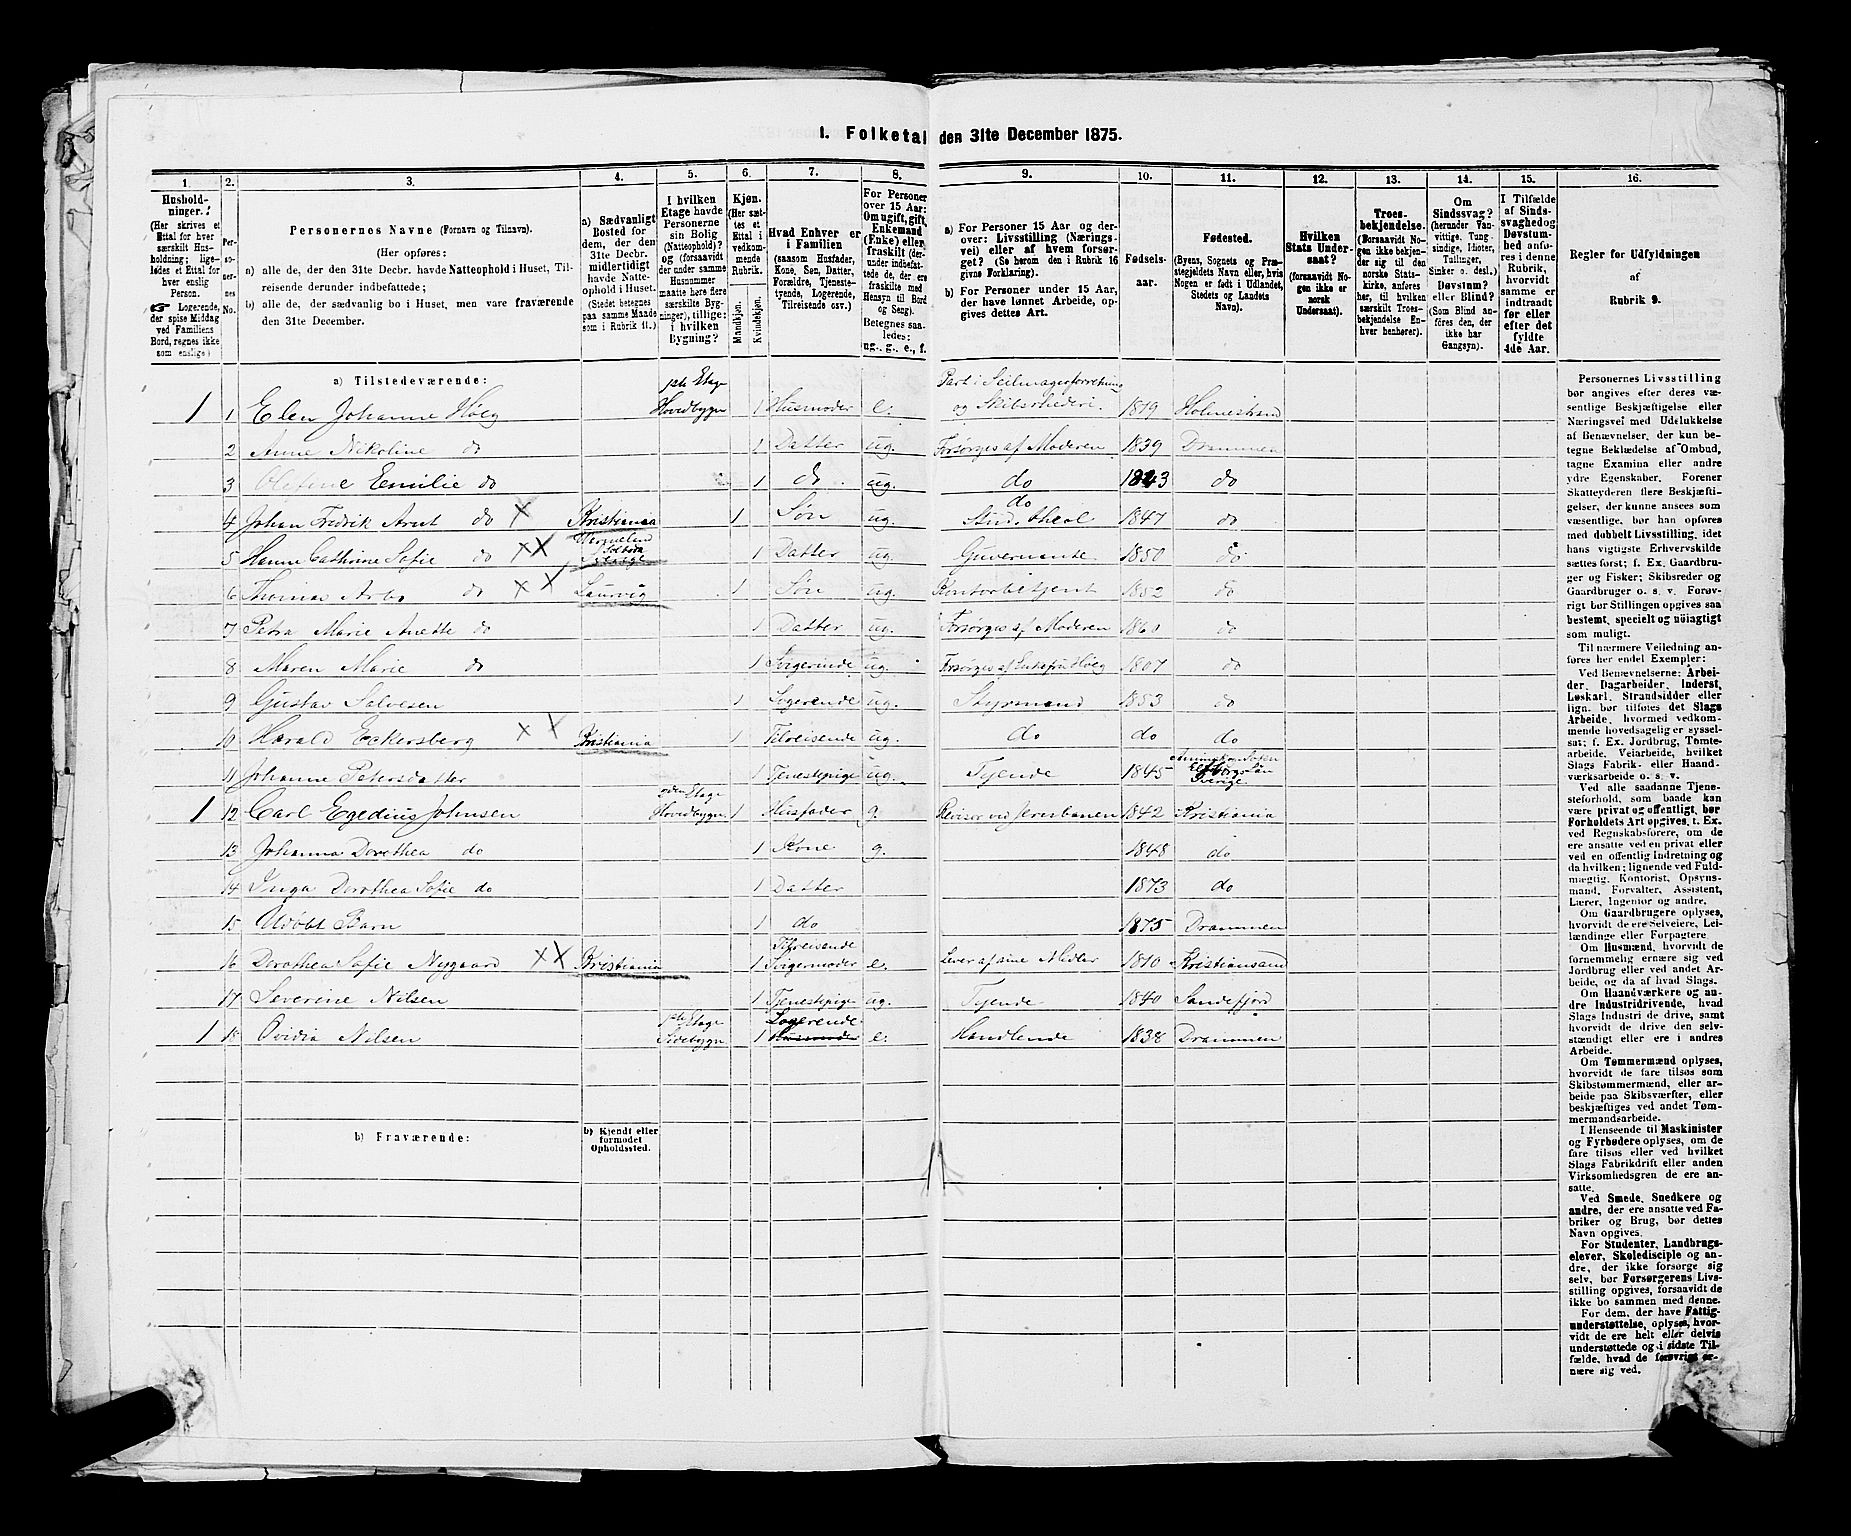 I. Folketal den 31te December 1875.
1. 2. 3. 4. 5. 6. 7. 8. 9. 10. 11. 12. 13. 14. 15. 16.
Hushold-
ninger.
(Her skrives et
Ettal for hver
særskilt Hus-
holdning; lige-
ledes et Ettal for
hver enslig
Person.
Logerende,
der spise Middag
ved Familiens
Bord, regnes ikke
som enslige)
Per-
so-
ner-
nes
No.
Personernes Navne (Fornavn og Tilnavn).
(Her opføres:
a) alle de, der den 31te Decbr. havde Natteophold i Huset, Til-
reisende derunder indbefattede;
b) alle de, der sædvanlig bo i Huset, men vare fraværende
den 31te December.
a) Sædvanligt
Bosted for
dem, der den
31te Decbr.
midlertidigt
havde Natte-
ophold i Huset.
(Stedet betegnes
paa samme Maade
som i Rubrik 11.)
I hvilken
Etage havde
Personerne
sin Bolig
(Natteophold)?
og (forsaavidt
der under samme
Husnummer
maatte høre flere
særskilte Byg-
ninger), tillige:
i hvilken
Bygning?
Kjøn.
(Her sæt-
tes et
Ettal i
vedkom-
mende
Rubrik.
Mandkjøn.
Kvindekjøn.
Hvad Enhver er
i Familien
(saasom Husfader,
Kone, Søn, Datter,
Forældre, Tjeneste-
tyende, Logerende,
Tilreisende osv.)
For Personer
over 15 Aar:
Om ugift, gift,
Enkemand
(Enke) eller
fraskilt (der-
under indbefat-
tede de, der ere
fraskilte med
Hensyn til Bord
og Seng).
Betegnes saa-
ledes:
ug., g., e., f.
a) For Personer 15 Aar og der-
over: Livsstilling (Nærings-
vei) eller af hvem forsør-
get? (Se herom den i Rubrik 16
givne Forklaring).
b) For Personer under 15 Aar,
der have lønnet Arbeide, op-
gives dettes Art.
Fødsels-
aar.
Fødested.
(Byens, Sognets og Præ-
stegjeldets Navn eller, hvis
Nogen er født i Udlandet,
Stedets og Landets
Navn).
Hvilken
Stats Under-
saat?
(forsaavidt No-
gen ikke er
norsk
Undersaat).
Troes-
bekjendelse.
(Forsaavidt No-
gen ikke bekjen-
der sig til den
norske Stats-
kirke, anføres
her, til hvilken
særskilt Troes-
bekjendelse En-
hver henhører).
Om
Sindssvag?
(herunder Van-
vittige, Tung-
sindige, Idioter,
Tullinger,
Sinker o. desl.)
Døvstum?
eller Blind?
(Som Blind an-
føres den, der
ikke har
Gangsyn).
I Tilfælde
af Sinds-
svaghed og
Døvstum-
hed anfø-
res i denne
Rubrik,
hvorvidt
samme er
indtraadt
før eller
efter det
fyldte
4de Aar.
Regler for Udfyldningen
af
Rubrik 9.
a) Tilstedeværende:
1 1 Elen Johanne Høeg 1ste Etage Hovedbygn 1 Husmoder e. Part i Seilmagerforretning og Skibsrhederi. 1819 Holmestrand
2 Anne Nikoline do 1 Datter ug. Forsørges af Moderen 1839 Drammen
3 Olefine Emilie do 1 do ug. do 1843 do
4 Johan Fredrik Arnt do × Kristiania 1 Søn ug. do Stud. theol 1847 do
5 Hanne Cathrine Sofie do ×× 1 Datter ug Guvernante 1850 do
6 Thomas Arbo do ×× Laurvig 1 Søn ug. Kontorbetjent 1852 do
7 Petra Marie Anette do 1 Datter ug. Forsørges af Moderen 1860 do
8 Maren Marie do 1 Svigerinde ug. Forsørges af Enkefru Høeg 1807 do
9 Gustav Salvesen 1 Logerende ug. Styrmand 1853 do
10 Harald Eckersberg ×× Kristiania 1 Tilreisende ug. do do do
11 Johanne Petersdatter 1 Tjenestepige ug. Tjende 1845 Elfsborgs Län Sverige
1 12 Carl Egedius Johnsen 2den Etage Hovedbygn. 1 Husfader g. Revisor ved Jernbanen 1842 Kristiania
13 Johanna Dorethea do 1 Kone g. 1848 do
14 Inga Dorothea Sofie do 1 Datter 1873 do
15 Udøbt Barn 1 do 1875 Drammen
16 Dorothea Sofie Nygaard ×× Kristiania 1 Tilreisende Svigermoder e. Lever af sine Midler 1810 Kristiansand
17 Severine Nilsen 1 Tjenestepige ug. Tjende 1840 Sandefjord
1 18 Ovidia Nilsen 1ste Etage Sidebygn 1 Logerende Husmoder e. Handlende 1838 Drammen
b) Fraværende:
b) Kjendt eller
formodet
Opholdssted.
Personernes Livsstilling
bør angives efter deres væ-
sentlige Beskjæftigelse eller
Næringsvei med Udelukkelse
af Benævnelser, der kun be-
tegne Beklædelse af Ombud,
tagne Examina eller andre
ydre Egenskaber. Forener
Skatteyderen flere Beskjæfti-
gelser, der kunne ansees som
væsentlige, bør han opføres
med dobbelt Livsstilling, idet
hans vigtigste Erhvervskilde
sættes først; f. Ex. Gaardbru-
ger og Fisker; Skibsreder og
Gaardbruger o. s. v. Forøv-
rigt bør Stillingen opgives saa
bestemt, specielt og nøiagtigt
som muligt.
Til nærmere Veiledning an-
føres her endel Exempler:
Ved Benævnelserne: Arbei-
der, Dagarbeider, Inderst,
Løskarl, Strandsidder eller
lign. bør tilføies det Slags
Arbeide, hvormed vedkom-
mende hovedsagelig er syssel-
sat; f. Ex. Jordbrug, Tømte-
arbeide, Veiarbeide, hvilket
Slags Fabrik- eller Haand-
værksarbeide o. s. v.
Ved alle saadanne Tjene-
steforhold, som baade kan
være privat og offentligt, bør
Forholdets Art opgives, t. Ex.
ved Regnskabsførere, om de
ere ansatte ved en privat eller
ved en offentlig Indretning og
da hvilken; lignende ved Fuld-
mægtig, Kontorist, Opsyns-
mand, Forvalter, Assistent,
Lærer, Ingeniør og andre.
Om Gaardbrugere oplyses,
hvorvidt de ere Selveiere, Lei-
lændinge eller Forpagtere.
Om Husmænd, hvorvidt de
fornemmelig ernære sig ved
Jordbrug eller ved andet Ar-
beide, og da af hvad Slags.
Om Haandværkere og an-
dre Industridrivende, hvad
Slags Industri de drive, samt
hvorvidt de drive den selv-
stændigt eller ere i andres
Arbeide.
Om Tømmermænd oplyses,
hvorvidt de fare tilsøs som
Skibstømmermænd, eller ar-
beide paa Skibsværfter, eller
beskjæftiges ved andet Tøm-
mermandsarbeide.
I Henseende til Maskinister
og Fyrbødere oplyses, om de
fare tilsøs eller ved hvilket
Slags Fabrikdrift eller anden
Virksomhedsgren de ere an-
satte.
Ved Smede, Snedkere og
andre, der ere ansatte ved Fa-
briker og Brug, bør dettes
Navn opgives.
For Studenter, Landbrugs-
elever, Skoledisciple og an-
dre, der ikke forsørge sig
selv, bør Forsørgerens Livs-
stilling opgives, forsaavidt de
ikke bo sammen med denne.
For dem, der have Fattig-
understøttelse, oplyses, hvor-
vidt de ere helt eller delvis
understøttede og i sidste Til-
fælde, hvad de forøvrigt er-
nære sig ved.